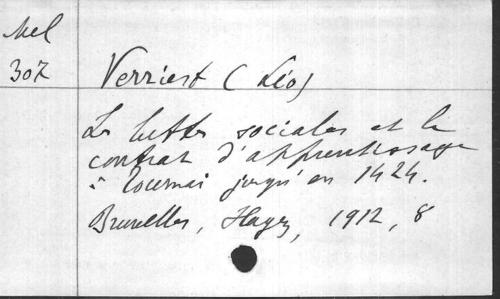 Mel
307
Verriest (Léo)
Les luttes sociales et le
contrat d'apprentissage
à Tournai jusqu'en 1424.
Bruxelles, Hayez, 1912, 8